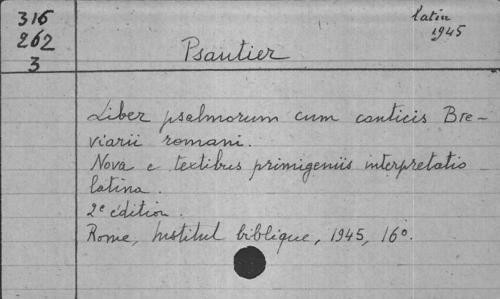 316
262
3
latin
1945
Psautier
Liber psalmorum cum canticis Bre-
viarii romani.
Nova e textibus primigeniis interpretatio
latina.
2e édition.
Rome, Institut biblique, 1945, 16°.